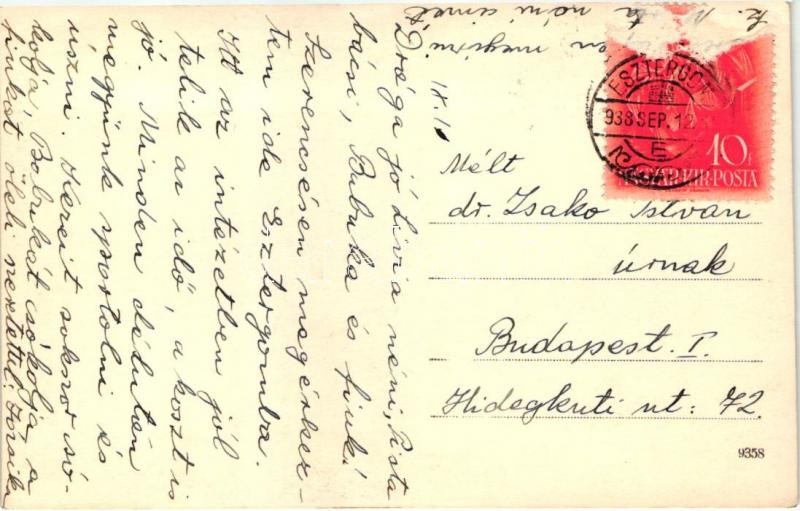 Drága jó Livia néni, Pista
bácsi, Bubuka és fiuk!
Szerencsésen megérkez-
tem ide Esztergomba.
Itt az intézetben jól
telik az idő, a koszt is
jó. Minden délután
megyünk sportolni és
uszni. Kezeit sokszor csó-
kolja, Bobukát csókolja a
fiukat öleli szeretettel:
néni cimét
megirni
IX. 11
ESZTERGOM
938 SEP. 12
E
10f
MAGYAR·KIR·POSTA
Mélt
dr. Zsako Istvan
úrnak
Budapest. I.
Hidegkuti ut: 72.
9358